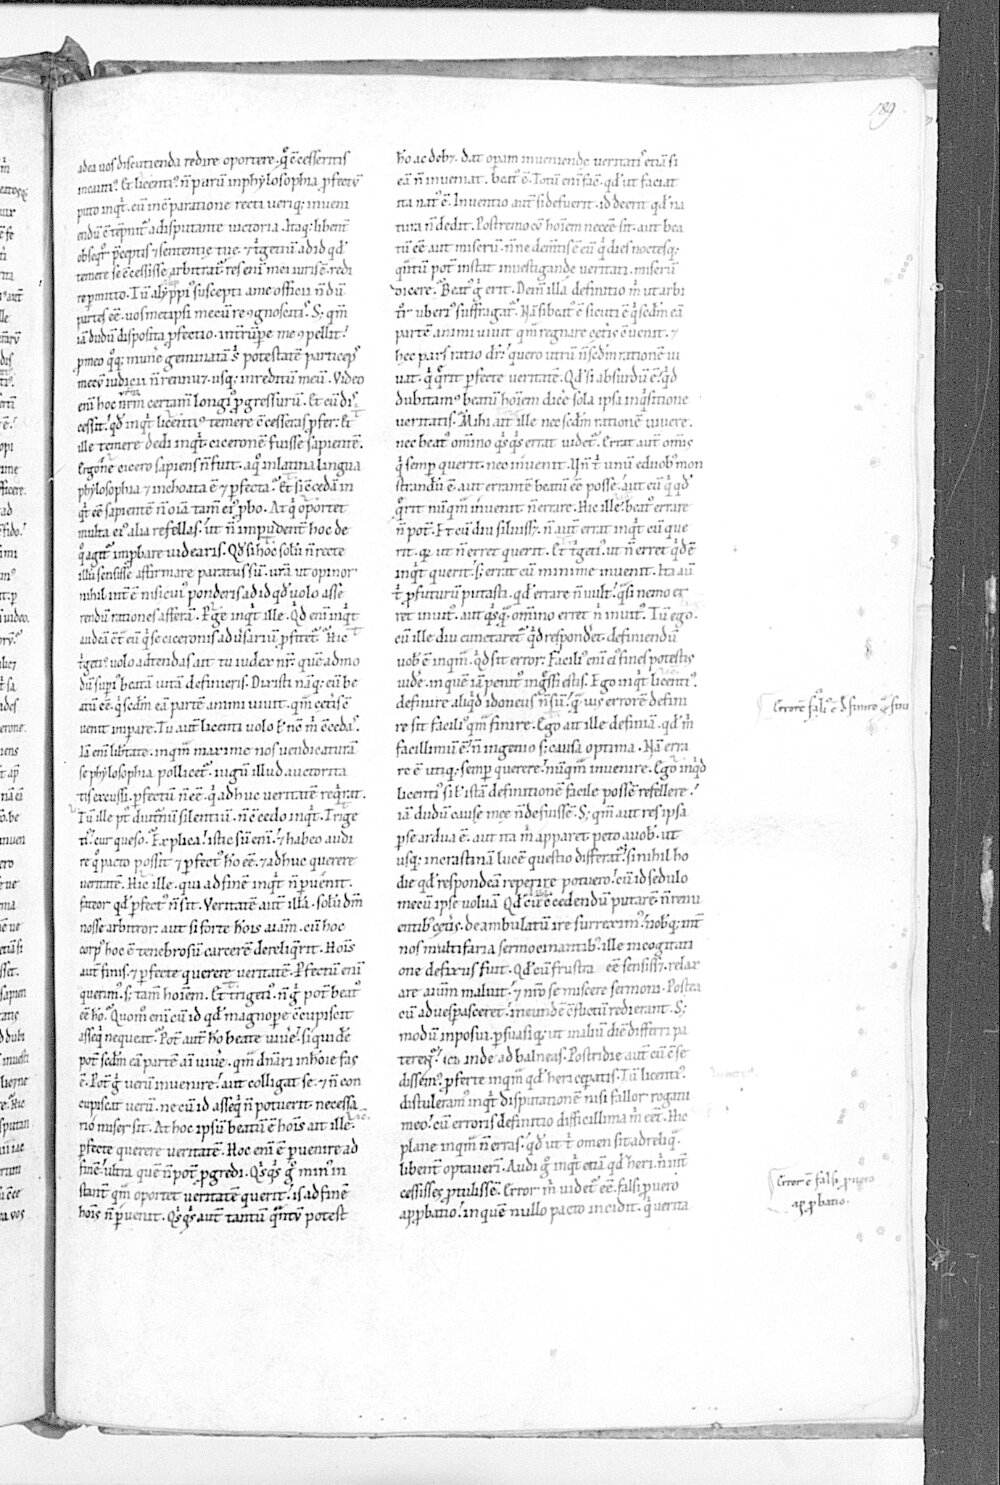 189
adea uos discutienda redire oportere. q̊ c̄cesseritis
incauti᷒. Et licenti᷒. n̄ parū inphylosophia ꝓfectū
puto inqt̄. cū inc̄paratione recti ueriq; inueni
endū c̄tēpnit᷑ a disputante uictoria. Itaq; libent̄
obseqr̄ p̄ceptis ⁊ sententie tue. ⁊ t̓getiū ad id qd̓
temere se c̄cessisse arbitrat᷑. res eni mei iuris ē. redi
re ꝑmitto. Tū alyppi᷒ suscepti ame officii n̄ dū
partes eē. uosmetipsi mecū re ꝯgnoscitis᷒. S; qm̄
iā dudū disposita ꝓfectio. int̄rūpe me ꝯpellit.
ꝑ meo qq; munīe geminatā s̓ potestatē particeps᷒
mecū iudicii n̄ rennu&. usq; inreditū meū. Video
eni hoc nr̄m certam̄ longi᷒ ꝓgressurū. Et cū di
cessit. qd̓ inqt̄ licenti᷒ temere c̄cesseras ꝓfer. Et
ille temere dedi inqt̄ ciceronē fuisse sapientē.
Ergone cicero sapiens n̄ fuit. aq̊ in latina lingua
phylosophia ⁊ inchoata ē ⁊ ꝑfecta. Et si c̄cedā in
qt̄ eē sapientē n̄ oīa tam̄ ei᷒ ꝓbo. Atq̇ oportet
multa ei᷒ alia refellas. ut n̄ impudent̄ hoc de
q̊ agit᷑ improbare uidearis. Qd̓ si hoc solū n̄ recte
illū sensisse affirmare paratus sū. ur̄a ut opinor
nihil int̄ē nisi cui᷒ ponderis ad id qd̓ uolo asse
rendū rationes afferā. Perge inqt̄ ille. Qd̓ eni inqt̄
audeā c̄t̄ eū q̇ se ciceronis adu̓sariū ꝓfitet᷑. Hic
t̓geti᷒ uolo adtendas ait tu iudex nr̄. quē admo
dū sup̓i᷒ beatā uitā definieris. Dixisti nāq; eū be
atū eē. q̇ scdm̄ eā partē animi uiuit. qm̄ cet̄is c̄
uenit imp̄are. Tu aut̄ licenti uolo t̓ nc̄ m̄ c̄cedas᷒.
Iā eni lib̄tate. inqm̄ maxime nos uendicaturā
se phylosophia pollicet᷑. iugū illud auctorita
tis excussi. ꝑfectū n̄ eē. q̇ adhuc ueritatē reqrat.
Tū ille pt̓ diutinū silentiū. n̄ c̄cedo inqt̄. Trige
ti᷒. cur queso. Explica. istic sū eni. ⁊ habeo audi
re q̊ pacto possit ⁊ ꝑfect᷒ hō eē. ⁊ adhuc querere
ueritatē. Hic ille. qui ad finē inqt̄ n̄ ꝑuenit.
fateor qd̓ ꝑfect᷒ n̄ sit. Veritatē aut̄ illā. solū dm̄
nosse arbitror. aut si forte hōis aīam. cū hoc
corp᷒ hoc ē tenebrosū carcerē dereliqrit. Hois
aut̄ finis. ē ꝑfecte querere ueritatē. Perfectū eni
querim᷒. s; tam̄ hoiem. Et trigeti᷒. n̄ g̊ pot̄ beat᷒
eē hō. Quom̊ eni cū id qd̓ magnope c̄cupiscit
asseq̇ nequeat. Pot̄ aut̄ hō beate uiuē. siquidē
pot̄ scdm̄ eā partē aī uiuē. qm̄ dn̄ari in hoie fas
ē. Pot̄ g̊ uerū inuenire. aut colligat se. ⁊ n̄ con
cupiscat uerū. ne cū id asseq̇ n̄ potuerit. necessa
rio miser sit. At hoc ipsū beatū ē hois ait ille.
ꝑfecte querere ueritatē. Hoc eni ē ꝑuenire ad
finē. ultra quē n̄ pot̄ ꝓgredi. Qsqs g̊ min᷒ in
stant̄ qm̄ oportet ueritatē querit. is ad finē
hois n̄ ꝑuenit. Qsqs aut̄ tantū q̄ntū potest
hō ac deb&. dat opam inueniende ueritati᷒ etiā si
eā n̄ inueniat. beat᷒ ē. Totū eni facē. qd̓ ut faciat
ita nat᷒ ē. Inuentio aut̄ si defuerit. id deerit qd̓ na
tura n̄ dedit. Postremo cū hoiem necē sit. aut bea
tū eē aut miserū. n̄ne dem̄tis ē eū q̇ dies noctesq;
quātū pot̄ instat inuestigande ueritati. miserū
dicere. Beat᷒ g̊ erit. Dem̄ illa definitio m̄ ut arbi
tr̄ uberi᷒ suffragat᷑. Nā si beat᷒ ē sicuti ē q̇ scdm̄ eā
partē animi uiuit qm̄ regnare cet̄is c̄uenit. ⁊
hec pars ratio dr̄. quero utrū n̄ scdm rationē ui
uat. q̇ q̄rit ꝑfecte ueritatē. Qd̓ si absurdū ē. qd̓
dubitam᷒ beatū hoiem dicē sola ipsa inq̄sitione
ueritatis. Mihi ait ille nec scdm̄ rationē uiuere.
nec beat᷒ omīno qsqs errat uidet᷑. Errat aut̄ omīs
q̇ semp querit. nec inuenit. Vn̄ t̓ unū eduob᷒ mon
strandū ē. aut errantē beatū eē posse. aut eū q̇ qd̓
q̄rit nūqm̄ inuenit n̄ errare. Hic ille. beat᷒ errare
n̄ pot̄. Et cū diu siluiss&. n̄ aut̄ errat inqt̄ cū que
rit. qr ut n̄ erret querit. Et t̓geti᷒. ut n̄ erret qd̓ē
inqt̄ querit. s; errat cū minime inuenit. Ita aū
t̓ ꝓfuturū putasti. qd̓ errare n̄ uult. qsi nemo er
ret inuit᷒. aut qsq; omīno erret n̄ inuit᷒. Tū ego.
cū ille diu cunctaret᷑ qd̓ respondet. definiendū
uob̓ ē inqm̄. qd̓ sit error. Facili᷒ eni ei᷒ fines potestis
uide. in quē iā penit᷒ ingssi estis. Ego inqt̄ licenti᷒.
definire aliqd̓ idoneus n̄ sū. q̄ uis errorē defini
re sit facili᷒ qm̄ finire. Ego ait ille definiā. qd̓ m̄
facillimū ē. n̄ ingenio s; causa optima. Nā erra
re ē utiq; semp querere. nūqm̄ inuenire. Ego inqd
licenti᷒ si t̓ istā definitionē facile possē refellere.
iā dudū cause mee n̄ defuissē. S; qm̄ aut res ipsa
pse ardua ē. aut ita m̄ apparet peto auob̓. ut
usq; incrastinā lucē questio differat᷑. si nihil ho
die qd̓ respondeā reperire potuero. cū id sedulo
mecū ipse uoluā. Qd̓ cū c̄cedendū putarē. n̄ renu
entib᷒ cet̄is. deambulatū ire surreximus᷒. nobq; int̄
nos multifaria sermocinantib᷒. ille incogitati
one defixus fuit. Qd̓ cū frustra eē sensiss&. relax
are aīum maluit. ⁊ nr̄o se miscere sermoni. Postea
cū aduespasceret. ineundē c̄flictū redierant. S;
modū inposui. ꝑsuasiq; ut inaliū diē differri pa
terent᷑. Icīr inde ad balneas. Postridie aut̄ cū c̄se
dissem᷒. ꝓferte inqm̄ qd̓ heri cepatis. Tū licenti᷒.
distuleram᷒ inqt̄ disputationē nisi fallor rogatu
meo. cū erroris definitio difficillima m̄ eēt. Hic
plane inqm̄ n̄ erras. qd̓ ut t̓ omen sit ad reliq.
libent̄ optauerī. Audi g̊ inqt̄ etiā qd̓ heri. n̄ int̄
cessisses ꝓtulissē. Error m̄ uidet᷑ eē. falsi ꝑ uero
apꝓbatio. in quē nullo pacto incidit. q̇ uerita
Errorē facili᷒ ē d̓finire q̄ fini
Error ē falsi ꝑ uero
apꝓbatio.